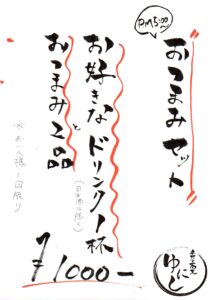 PM5:00〜
おつまみセット
お好きなドリンク1杯
(日本酒は除く)
と
おつまみ2品
※お一人様1回限り
¥1000−
ゆにど